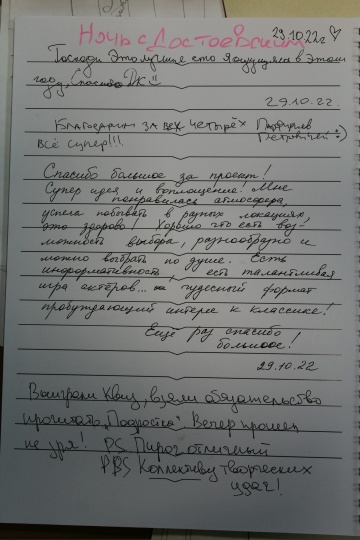 29.10.22г
Ночь с Достоевским
Господи это лучшее что я ощущала в этом
году, Спасибо ДК!!
29.10.22.
Благодарим за всех четырёх
Петровичей :)
Всё супер!!!
Спасибо большое за проект!
Супер идея и воплощение! Мне
понравилась атмосфера,
успела побывать в разных локациях,
это здорово! Хорошо что есть воз-
можность выбора, разнообразно и
можно выбрать по душе. Есть
информативность, есть талантливая
игра актёров... чудесный формат
пробуждающий интерес к классике!
Ещё раз спасибо
большое!
29.10.22
Выиграли Квиз, взяли обязательство
прочитать "Подросток" Вечер прошел
не зря! PS Пирог отличный
PBS Коллективу творческих
удач!